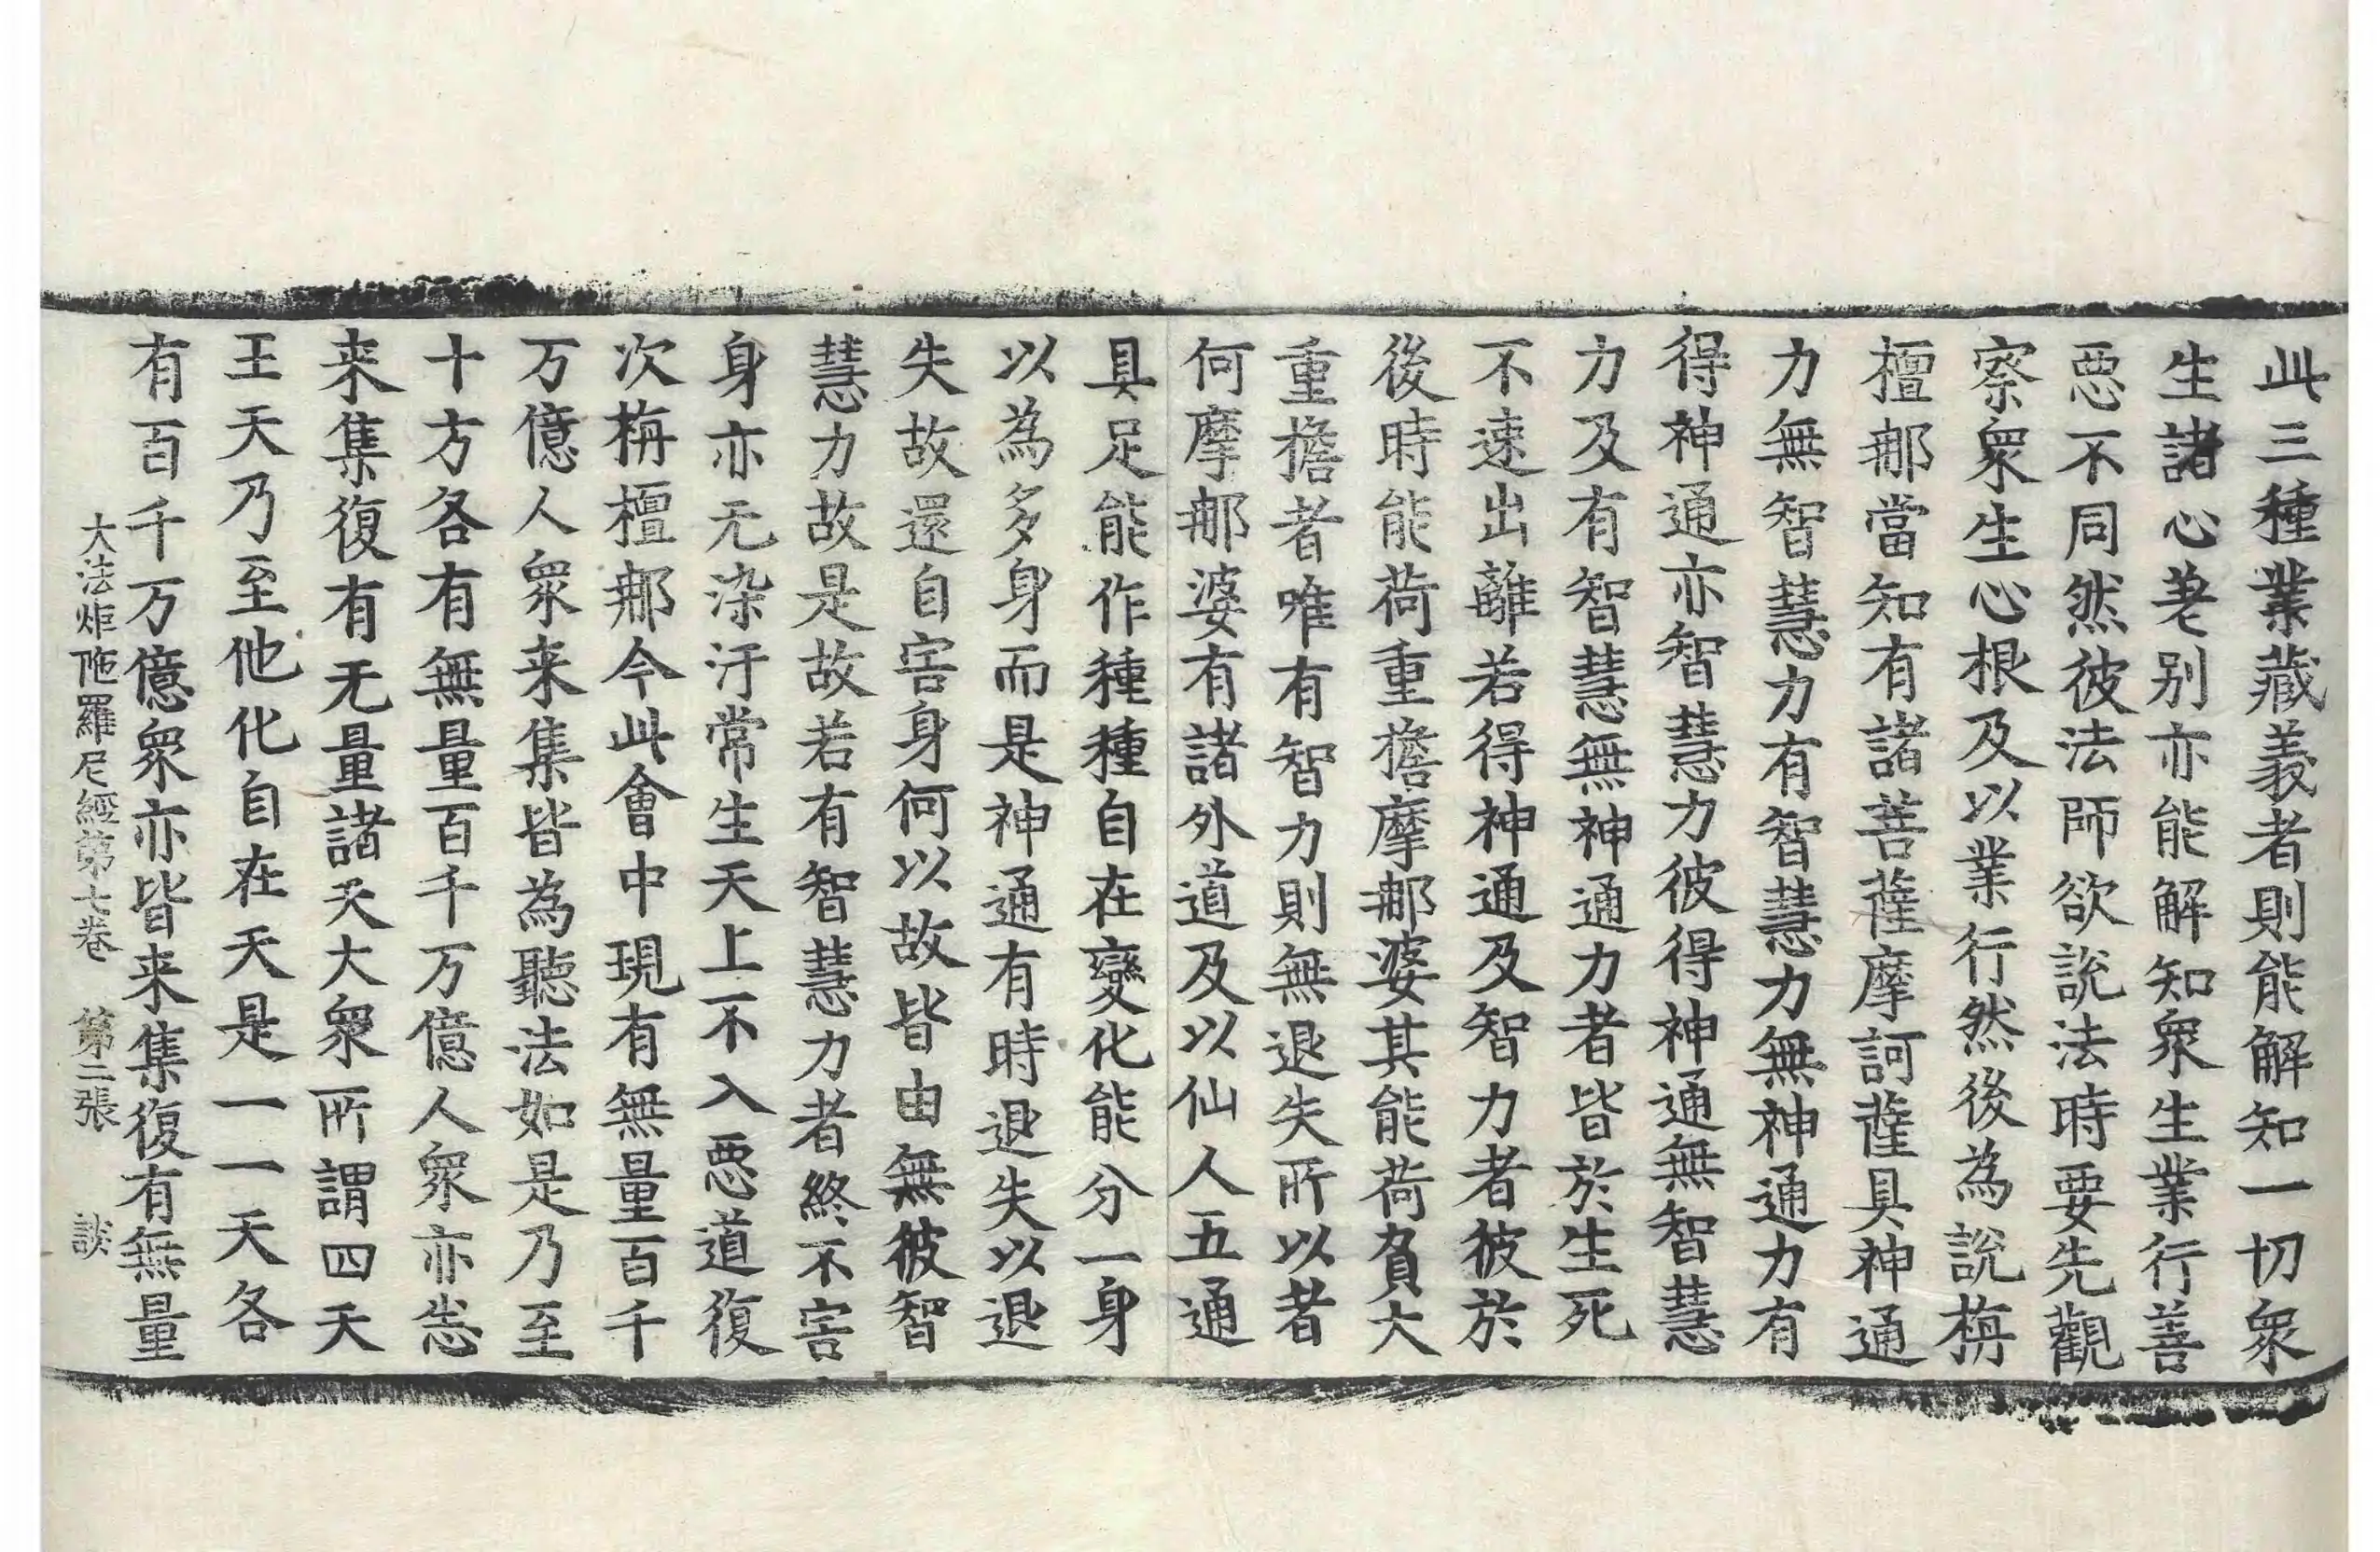 此三種業藏義者則能解知一切衆
生諸心差别亦能解知衆生業行善
惡不同然彼法師欲說法時要先觀
察衆生心根及以業行然後為說栴
檀那當知有諸菩薩摩訶薩具神通
力無智慧力有智慧力無神通力有
得神通亦智慧力彼得神通無智慧
力及有智慧無神通力者皆於生死
不速出離若得神通及智力者彼於
後時能荷重擔摩那婆其能荷負大
重擔者唯有智力則無退失所以者
何摩那婆有諸外道及以仙人五通
具足能作種種自在變化能分一身
以為多身而是神通有時退失以退
失故還自害身何以故皆由無彼智
慧力故是故若有智慧力者終不害
身亦无染汙常生天上不入惡道復
次栴檀那今此會中現有無量百千
万億人衆来集皆為聽法如是乃至
十方各有無量百千万億人衆亦悉
来集復有无量諸天大衆所謂四天
王天乃至他化自在天是一一天各
有百千万億衆亦皆来集復有無量
大法炬陁羅尼經第七卷 第二張 談